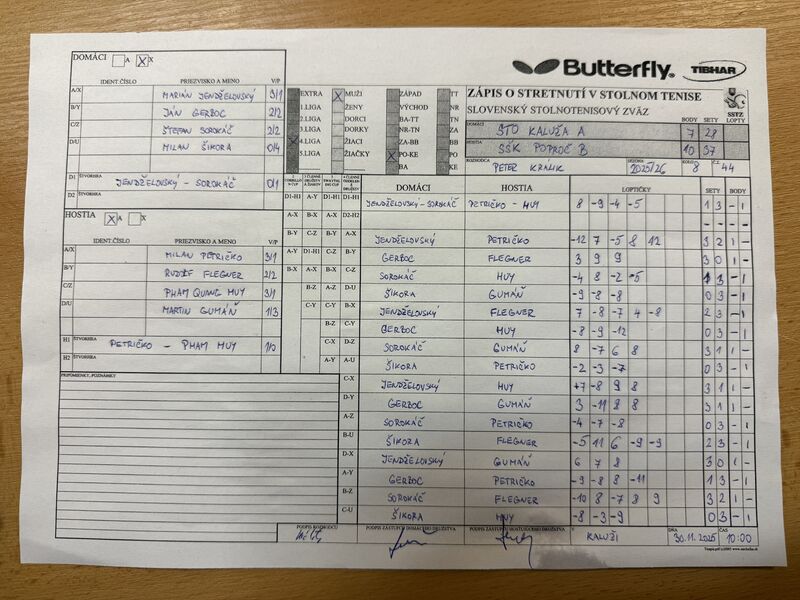 DOMÁCI A X X
IDENT.ČÍSLO PRIEZVISKO A MENO V/P
A/X MARIÁN JENDŽELOVSKÝ 3/1
B/Y JÁN GERBOC 2/2
C/Z ŠTEFAN SOROKÁČ 2/2
D/U MILAN ŠIKORA 0/4
D1 ŠTVORHRA JENDŽELOVSKÝ - SOROKÁČ 0/1
D2 ŠTVORHRA
HOSTIA X A X
IDENT.ČÍSLO PRIEZVISKO A MENO V/P
A/X MILAN PETRIČKO 3/1
B/Y RUDOLF FLEGNER 2/2
C/Z PHAM QUANG HUY 3/1
D/U MARTIN GUMÁŇ 1/3
H1 ŠTVORHRA PETRIČKO - PHAM HUY 1/0
H2 ŠTVORHRA
PRIPOMIENKY, POZNÁMKY
Butterfly TIBHAR
EXTRA X MUŽI ZÁPAD TT
1.LIGA ŽENY VÝCHOD NR
2.LIGA DORCI BA-TT TN
3.LIGA DORKY NR-TN ZA
X 4.LIGA ŽIACI ZA-BB BB
5.LIGA ŽIAČKY X PO-KE PO
BA KE
ZÁPIS O STRETNUTÍ V STOLNOM TENISE
SLOVENSKÝ STOLNOTENISOVÝ ZVÄZ
SSTZ
BODY SETY LOPTY
DOMÁCI STO KALUŽA A 7 28
HOSTIA SŠK POPROČ B 10 37
ROZHODCA PETER KRÁLIK SEZÓNA 2025/26 KOLO 8 Č.Z. 44
DOMÁCI HOSTIA LOPTIČKY SETY BODY
D1-H1 A-Y D1-H1 D1-H1 JENDŽELOVSKÝ - SOROKÁČ PETRIČKO - HUY 8 -9 -4 -5 1 3 - 1
A-X B-X A-X D2-H2 - - - -
B-Y C-Z B-Y A-X JENDŽELOVSKÝ PETRIČKO -12 7 -5 8 12 3 2 1 -
A-Y D1-H1 C-Z B-Y GERBOC FLEGNER 3 9 9 3 0 1 -
B-X A-X B-X C-Z SOROKÁČ HUY -4 8 -2 -5 1 3 - 1
B-Z A-Z D-U ŠIKORA GUMÁŇ -9 -8 -8 0 3 - 1
C-Y C-Y B-X JENDŽELOVSKÝ FLEGNER 7 -8 -7 4 -8 2 3 - 1
B-Z C-Y GERBOC HUY -8 -9 -12 0 3 - 1
C-X D-Z SOROKÁČ GUMÁŇ 8 -7 6 8 3 1 1 -
A-Y A-U ŠIKORA PETRIČKO -2 -3 -7 0 3 - 1
C-X JENDŽELOVSKÝ HUY +7 -8 9 8 3 1 1 -
D-Y GERBOC GUMÁŇ 3 -11 8 8 3 1 1 -
A-Z SOROKÁČ PETRIČKO -4 -7 -8 0 3 - 1
B-U ŠIKORA FLEGNER -5 11 6 -9 -9 2 3 - 1
D-X JENDŽELOVSKÝ GUMÁŇ 6 7 8 3 0 1 -
A-Y GERBOC PETRIČKO -9 -8 8 -11 1 3 - 1
B-Z SOROKÁČ FLEGNER -10 8 -7 8 9 3 2 1 -
C-U ŠIKORA HUY -8 -3 -9 0 3 - 1
PODPIS ROZHODCU PODPIS ZÁSTUPCU DOMÁCEHO DRUŽSTVA PODPIS ZÁSTUPCU HOSŤUJÚCEHO DRUŽSTVA V KALUŽI DŇA 30.11.2025 ČAS 10:00